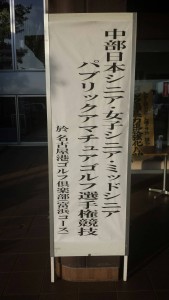 中部日本シニア・女子シニア・ミッドシニア
パブリックアマチュアゴルフ選手権競技
於 名古屋港ゴルフ倶楽部(富浜コース)